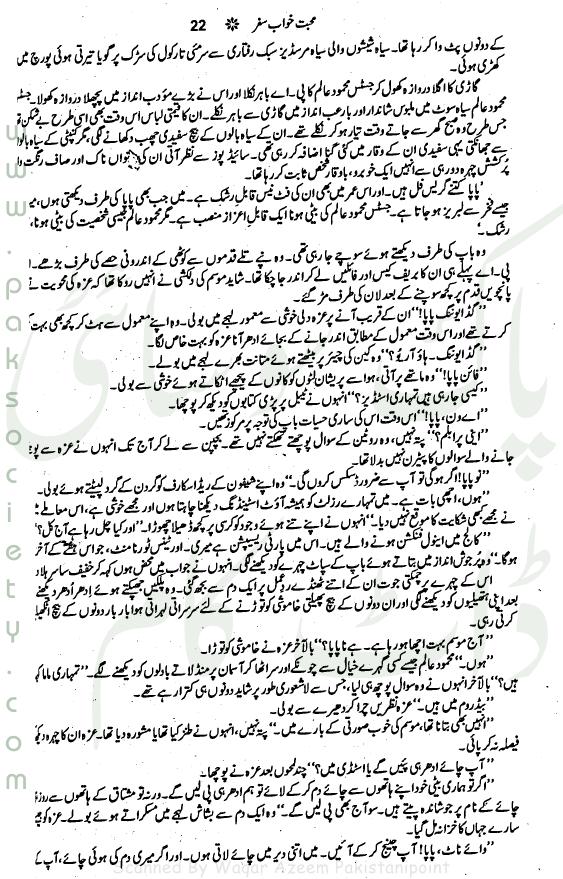 محبت خواب سفر ❋ 22
کے دونوں پٹ وا کر رہا تھا۔ سیاہ شیشوں والی سیاہ مرسڈیز سبک رفتاری سے سرمئی تارکول کی سڑک پر گویا تیرتی ہوئی پورچ میں
کھڑی ہوئی۔
گاڑی کا اگلا دروازہ کھول کر جسٹس محمود عالم کا پی۔ اے باہر نکلا اور اس نے بڑے مؤدب انداز میں پچھلا دروازہ کھولا۔ جسٹس
محمود عالم سیاہ سوٹ میں ملبوس شاندار اور بارعب انداز میں گاڑی سے باہر نکلے۔ ان کا قیمتی لباس اس وقت بھی اسی طرح بے شکن تھا
جس طرح وہ صبح گھر سے جاتے وقت تیار ہو کر نکلے تھے۔ ان کے سیاہ بالوں کے بیچ سفیدی چھب دکھانے لگی، مگر کنپٹی کے سیاہ بالوں
سے جھانکتی یہی سفیدی ان کے وقار میں کئی گنا اضافہ کر رہی تھی۔ سائیڈ پوز سے نظر آتی ان کی ستواں ناک اور صاف رنگت والا
پُرکشش چہرہ دور ہی سے انہیں ایک خوبرو، باوقار شخص ثابت کر رہا تھا۔
'پاپا کتنے گریس فل ہیں۔ اور اس عمر میں بھی ان کی فٹ نیس قابلِ رشک ہے۔ میں جب بھی پاپا کی طرف دیکھتی ہوں، میرا
جیسے فخر سے لبریز ہو جاتا ہے۔ جسٹس محمود عالم کی بیٹی ہونا ایک قابلِ اعزاز منصب ہے۔ مگر محمود عالم جیسی شخصیت کی بیٹی ہونا،
رشک۔'
وہ باپ کی طرف دیکھتے ہوئے سوچے جا رہی تھی۔ وہ نپے تلے قدموں سے کوٹھی کے اندرونی حصے کی طرف بڑھے۔
پی۔ اے پہلے ہی ان کا بریف کیس اور فائلیں لے کر اندر جا چکا تھا۔ شاید موسم کی دلکشی نے انہیں روکا تھا کہ عزہ کی محویت نے
پانچویں قدم پر کچھ سوچنے کے بعد لان کی طرف مڑ گئے۔
''گڈ ایوننگ پاپا!'' ان کے قریب آنے پر عزہ دلی خوشی سے معمور لہجے میں بولی۔ وہ اپنے معمول سے ہٹ کر کچھ بھی بہت کم
کرتے تھے اور اس وقت معمول کے مطابق اندر جانے کے بجائے ادھر آنا عزہ کو بہت خاص لگا۔
''گڈ ایوننگ۔ ہاؤ آر یُو؟'' وہ کین کی چیئر پر بیٹھتے ہوئے متانت بھرے لہجے میں بولے۔
''فائن پاپا!'' وہ ماتھے پر آتی، ہوا سے پریشان لٹوں کو کانوں کے پیچھے اٹکاتے ہوئے خوشی سے بولی۔
''کیسی جا رہی ہیں تمہاری اسٹڈیز؟'' انہوں نے ٹیبل پر پڑی کتابوں کو دیکھ کر پوچھا۔
''اے ون، پاپا!'' اس وقت اس کی ساری حسیات باپ کی توجہ پر مرکوز تھیں۔
''اینی پرابلم؟'' پتہ نہیں، وہ روٹین کے سوال پوچھتے تھکتے نہیں تھے۔ بچپن سے لے کر آج تک انہوں نے عزہ سے پوچھے
جانے والے سوالوں کا پیٹرن نہیں بدلا تھا۔
''نو پاپا! اگر ہو گی تو آپ سے ضرور ڈسکس کروں گی۔'' وہ اپنے شیفون کے ریڈ اسکارف کو گردن کے گرد لپیٹتے ہوئے بولی۔
''ہوں، اچھی بات ہے۔ میں تمہارے رزلٹ کو ہمیشہ آؤٹ اسٹینڈنگ دیکھنا چاہتا ہوں اور مجھے خوشی ہے، اس معاملے میں
نے مجھے کبھی شکایت کا موقع نہیں دیا۔'' انہوں نے اپنے تنے ہوئے وجود کو کرسی پر کچھ ڈھیلا چھوڑا۔ ''اور کیا چل رہا ہے آج کل؟''
''کالج میں اینول فنکشن ہونے والے ہیں۔ اس میں پارٹی سپیشن ہے میری۔ اور ٹینس ٹورنامنٹ، جو اس ہفتے کے آخر
ہو گا۔'' وہ پُرجوش انداز میں بتاتے ہوئے باپ کے سپاٹ چہرے کو دیکھنے لگی۔ انہوں نے جواب میں محض ہوں کہہ کر خفیف سا سر ہلا دیا
اس کے چہرے پر چمکتی جوت ان کے اتنے ٹھنڈے ردِعمل پر ایک دم سے بجھ گئی۔ وہ پلکیں جھپکتے ہوئے اِدھر اُدھر دیکھنے
بعد اپنی ہتھیلیوں کو دیکھنے لگی اور ان دونوں کے بیچ پھیلتی خاموشی کو توڑنے کے لئے سرسراتی لہراتی ہوا بار بار دونوں کے بیچ اٹکھیلیاں
کرتی رہی۔
''آج موسم بہت اچھا ہو رہا ہے۔ ہے نا پاپا؟'' بالآخر عزہ نے خاموشی کو توڑا۔
''ہوں۔'' محمود عالم جیسے کسی گہرے خیال سے چونکے اور سر اٹھا کر آسمان پر منڈلاتے بادلوں کو دیکھنے لگے۔ ''تمہاری ماما کہاں
ہیں؟'' بالآخر انہوں نے وہ سوال پوچھ ہی لیا، جس سے لاشعوری طور پر شاید دونوں ہی کترا رہے تھے۔
''بیڈ روم میں ہیں۔'' عزہ نظریں چرا کر دھیرے سے بولی۔
''انہیں بھی بتانا تھا، موسم کی خوب صورتی کے بارے میں۔'' پتہ نہیں، انہوں نے طنز کیا تھا یا مشورہ دیا تھا۔ عزہ ان کا چہرہ دیکھ کر
فیصلہ نہ کر پائی۔
''آپ چائے ادھر ہی پئیں گے یا اسٹڈی میں؟'' چند لمحوں بعد عزہ نے پوچھا۔
''اگر تو ہماری بیٹی خود اپنے ہاتھوں سے چائے دم کر کے لائے تو ہم ادھر ہی پی لیں گے۔ ورنہ تو مشتاق کے ہاتھوں سے روز
چائے کے نام پر جوشاندہ پیتے ہیں۔ سو آج بھی پی لیں گے۔'' وہ ایک دم سے بشاش لہجے میں مسکراتے ہوئے بولے۔ عزہ کو جیسے
سارے جہاں کا خزانہ مل گیا۔
''وائے ناٹ، پاپا! آپ چینج کر کے آئیں۔ میں اتنی دیر میں چائے لاتی ہوں۔ اور اگر میری دم کی ہوئی چائے، آپ کے
Scanned By Waqar Azeem Pakistanipoint
www.paksociety.com
پاک سوسائٹی
ڈاٹ کام